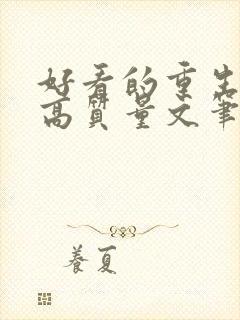 好看的重生
高质量文笔
养夏